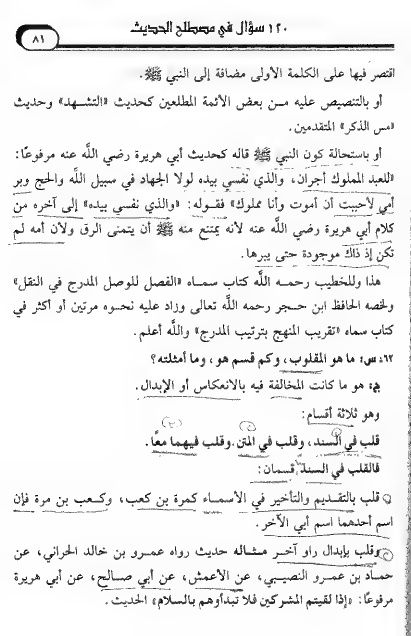 ١٢٠ سؤال في مصطلح الحديث
٨١
اقتصر فيها على الكلمة الأولى مضافة إلى النبي ﷺ.
أو بالتنصيص عليه من بعض الأئمة المطلعين كحديث «التشهد» وحديث
«مس الذكر» المتقدمين.
أو باستحالة كون النبي ﷺ قاله كحديث أبي هريرة رضي الله عنه مرفوعًا:
«للعبد المملوك أجران، والذي نفسي بيده لولا الجهاد في سبيل الله والحج وبر
أمي لأحببت أن أموت وأنا مملوك» فقوله: «والذي نفسي بيده» إلى آخره من
كلام أبي هريرة رضي الله عنه لأنه يمتنع منه ﷺ أن يتمنى الرق ولأن أمه لم
تكن إذ ذاك موجودة حتى يبرها.
هذا وللخطيب رحمه الله كتاب سماه «الفصل للوصل المدرج في النقل»
ولخصه الحافظ ابن حجر رحمه الله تعالى وزاد عليه نحوه مرتين أو أكثر في
كتاب سماه «تقريب المنهج بترتيب المدرج» والله أعلم.
٦٢: س: ما هو المقلوب، وكم قسم هو، وما أمثلته؟
ج: هو ما كانت المخالفة فيه بالانعكاس أو الإبدال.
وهو ثلاثة أقسام:
قلب في السند، وقلب في المتن. وقلب فيهما معًا.
فالقلب في السند قسمان:
قلب بالتقديم والتأخير في الأسماء كمرة بن كعب، وكعب بن مرة فإن
اسم أحدهما اسم أبي الآخر.
وقلب بإبدال راو آخر مثاله حديث رواه عمرو بن خالد الحراني، عن
حماد بن عمرو النصيبي، عن الأعمش، عن أبي صالح، عن أبي هريرة
مرفوعًا: «إذا لقيتم المشركين فلا تبدأوهم بالسلام» الحديث.